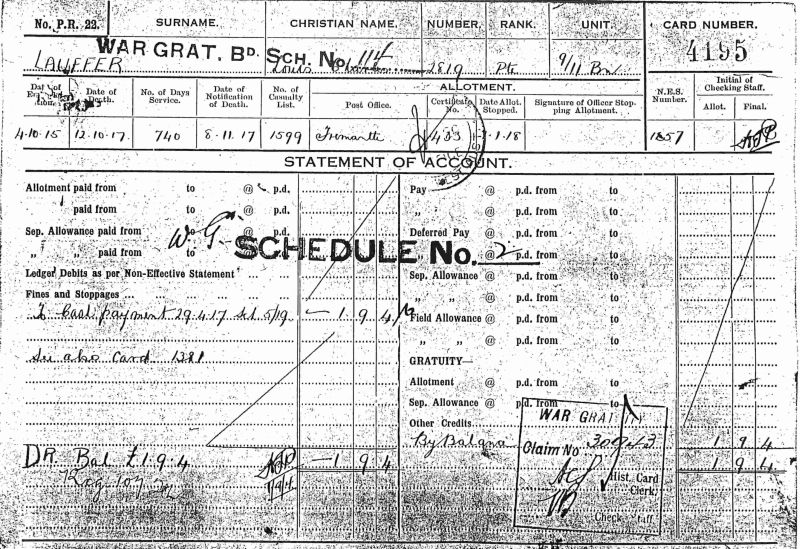 No. P.R. 22. SURNAME. CHRISTIAN NAME. NUMBER. RANK. UNIT. CARD NUMBER.
WAR GRAT. BD. SCH. No. 114
4195
LAUFFER Louis 2819 Pte 9/11 Bn
Date of Death. No. of Days Service. Date of Notification of Death. No. of Casualty List. ALLOTMENT. N.E.S. Number. Initial of Checking Staff.
Post Office. Certificate No. Date Allot. Stopped. Signature of Officer Stopping Allotment. Allot. Final.
4.10.15 12.10.17 740 8.11.17 1599 Fremantle 1.18 1857
STATEMENT OF ACCOUNT.
Allotment paid from to @ p.d. Pay @ p.d. from to
" paid from to @ p.d. " @ p.d. from to
Sep. Allowance paid from to @ p.d. Deferred Pay @ p.d. from to
" " paid from to @ " @ p.d. from to
W. G. SCHEDULE No. 2
Ledger Debits as per Non-Effective Statement Sep. Allowance @ p.d. from to
Fines and Stoppages ... " " @ p.d. from to
Cash payment 29.4.17 1 9 4 Field Allowance @ p.d. from to
" " @ p.d. from to
See also Card 1381 GRATUITY—
Allotment @ p.d. from to
Sep. Allowance @ p.d. from to
Other Credits
WAR GRATUITY
By Balance 1 9 4
Claim No
DR. Bal £1.9.4 1 9 4 1 9 4
Hist. Card Clerk.
Check Staff